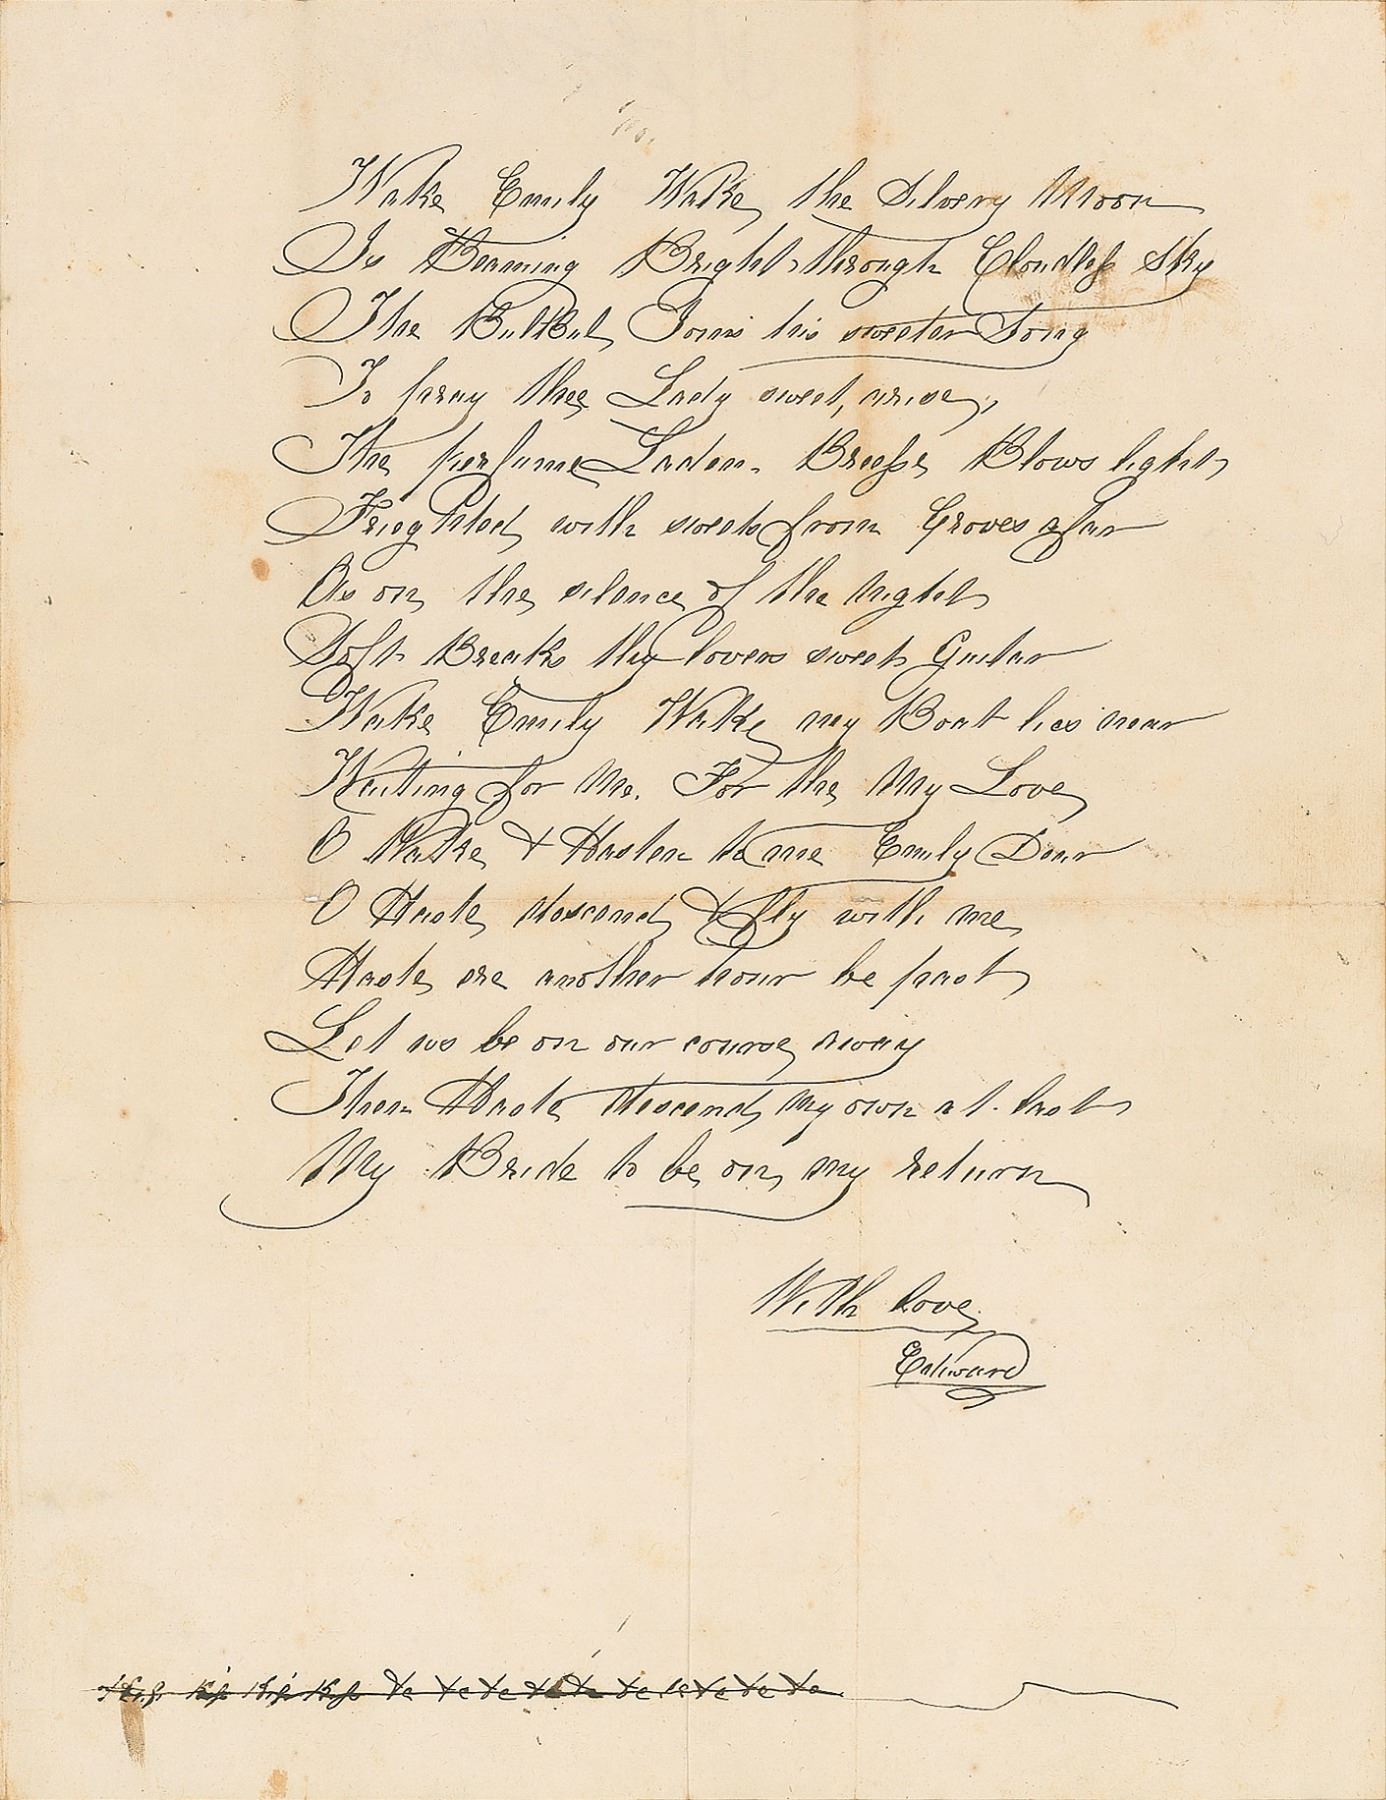 Wake Emily Wake, the Silvery Moon
Is Beaming Bright through Cloudless Sky
The BulBul Joins his sweeter Song
To pray thee Lady sweet, arise,
The perfume Laden Breeze Blows light
Frieghted with sweets from Groves afar
As on the silence of the night
Soft Breaks thy lovers sweet Guitar
Wake Emily Wake my Boat lies near
Waiting for Me. For the My Love
O Wake & Hasten to me Emily Dear
O Haste descend & fly with me
Haste ere another hour be past
Let us be on our course away
Then Haste descend my own at last
My Bride to be on my return
With love
Edward